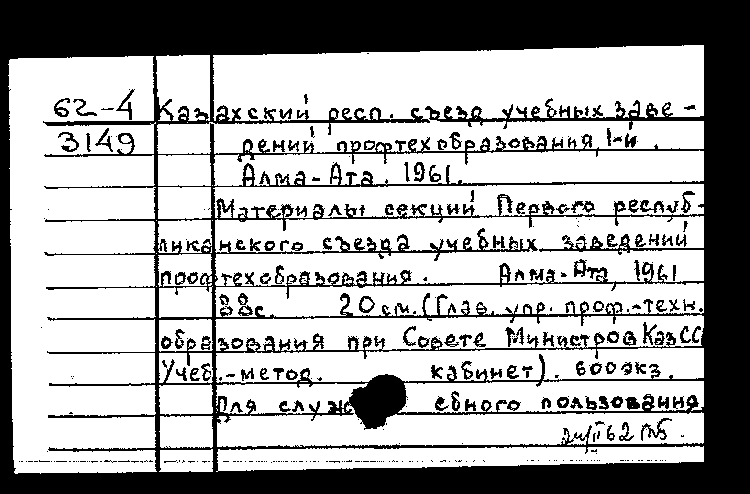 62-4 Казахский респ. съезд учебных заве-
3149 дений профтехобразования, 1-й.
Алма-Ата. 1961.
Материалы секций Первого респуб-
ликанского съезда учебных заведений
профтехобразования. Алма-Ата, 1961
88с. 20 см. (Глав. упр. проф.-техн.
образования при Совете Министров КазСС
Учеб.-метод. кабинет). 600экз.
Для служ ебного пользования.
62